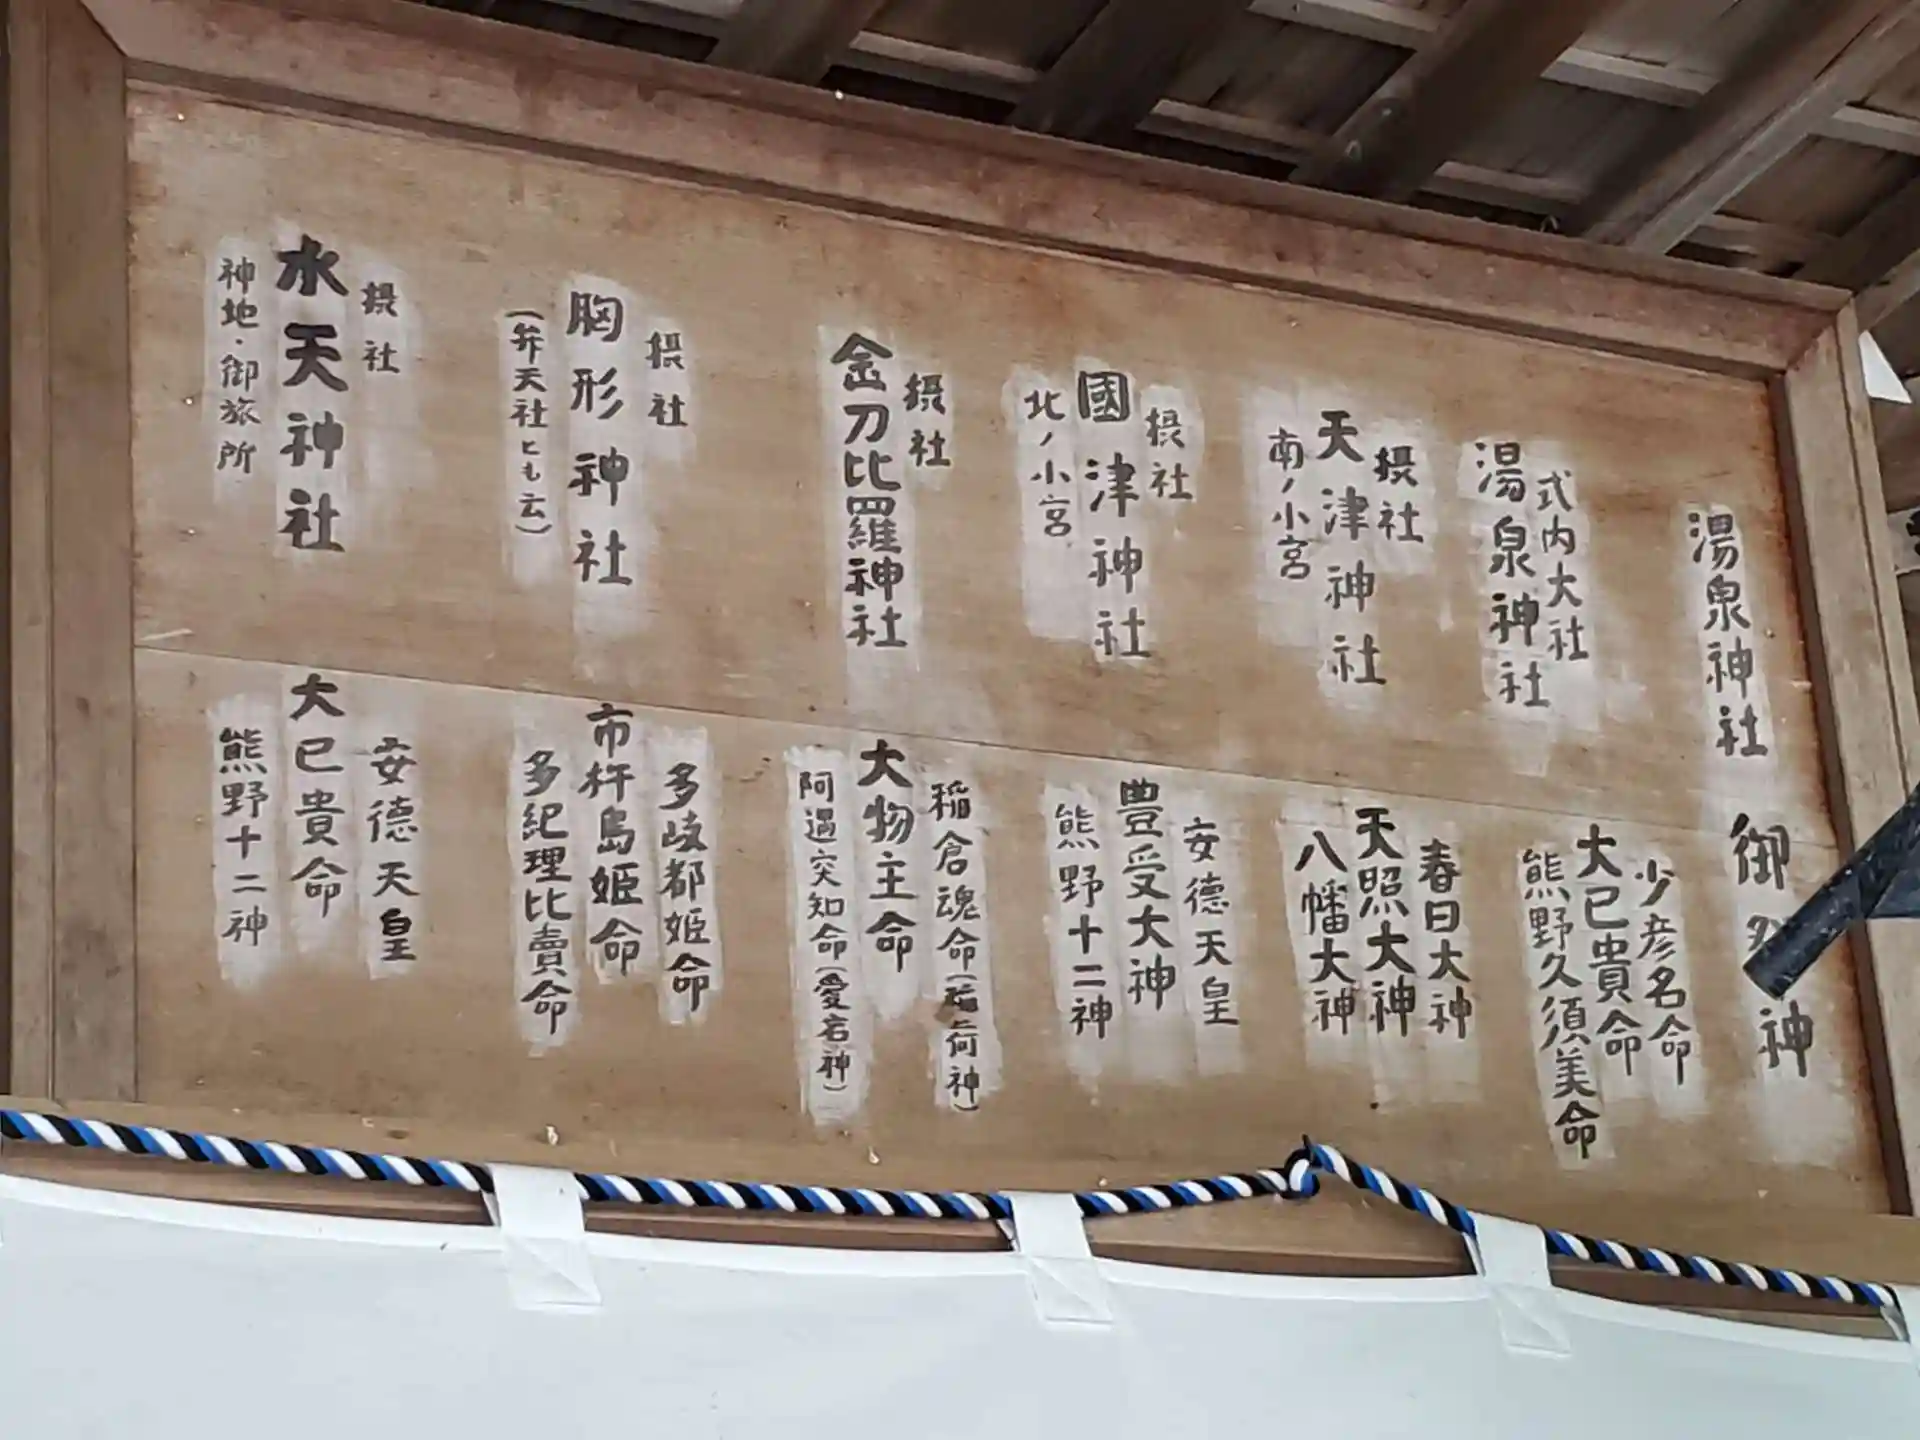 湯泉神社
御祭神
式内大社
湯泉神社
少彦名命
大已貴命
熊野久須美命
摂社
天津神社
南ノ小宮
春日大神
天照大神
八幡大神
摂社
國津神社
北ノ小宮
安德天皇
豊受大神
熊野十二神
摂社
金刀比羅神社
稲倉魂命(稲荷神)
大物主命
阿遇突知命(愛宕神)
摂社
胸形神社
(弁天社とも云)
多岐都姫命
市杵島姫命
多紀理比賣命
摂社
水天神社
神地・御旅所
安德天皇
大已貴命
熊野十二神